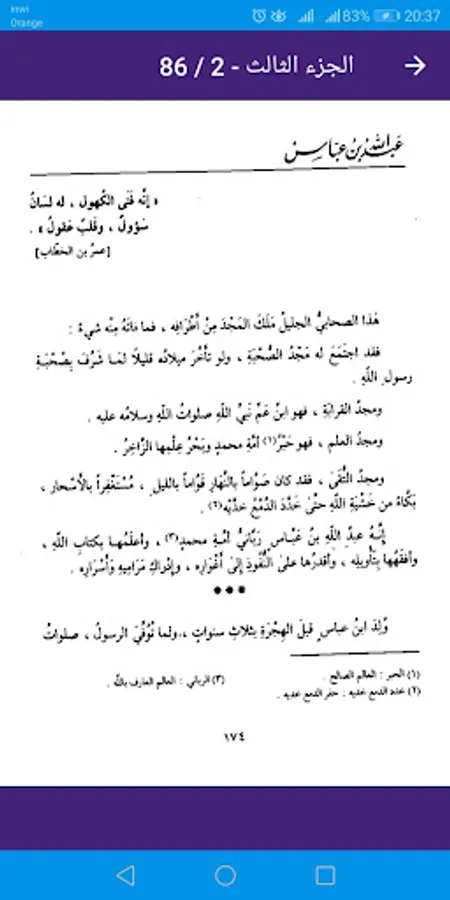 inwi
Orange
83%
20:37
الجزء الثالث - 2 / 86
عَبدُ اللّٰهِ بْنُ عَبَّاسٍ
« إِنَّه فَتَى الكُهولِ ، له لِسَانٌ
سَؤُولٌ ، وقَلبٌ عَقولٌ » .
[عمرُ بن الخطّاب]
هَذا الصحابيُّ الجليلُ مَلَكَ المَجْدَ مِنْ أَطْرَافِه ، فما فاتَهُ مِنْه شيءٌ :
فقد اجتمَعَ له مَجْدُ الصُّحْبَةِ ، ولو تأخَّرَ ميلادُه قليلاً لمَا شَرُفَ بِصُحْبَةِ
رسولِ اللّهِ .
ومجدُ القرابَةِ ، فهو ابنُ عَمِّ نَبيِّ اللّهِ صلواتُ اللّهِ وسلامُه عليه .
ومجدُ العلمِ ، فهو حَبْرُ(١) أمَّةِ محمدٍ وبَحْرُ عِلْمِها الزَّاخِرُ .
ومجدُ التُّقَى ، فقد كان صَوَّاماً بالنَّهارِ قَوَّاماً بالليلِ ، مُسْتَغْفِراً بالأسْحارِ ،
بَكَّاءً من خَشْيَةِ اللّهِ حتَّى خَدَّدَ الدَّمْعُ خدَّيْه(٢) .
إنَّهُ عبدُ اللّهِ بنُ عَبَّاسٍ رَبَّانيُّ أمَّةِ محمدٍ(٣) ، وأعلَمُها بكتابِ اللّهِ ،
وأفقَهُها بِتَأْوِيلِه ، وأقدَرُها على النُّفُوذِ إلى أغْوَارِه ، وإِدْرَاكِ مَرَامِيهِ وأسْرَارِه .
●●●
وُلِدَ ابنُ عباسٍ قبلَ الهِجْرَةِ بثلاثِ سنواتٍ ، ولما تُوُفِّيَ الرسولُ ، صلواتُ
(١) الحبر : العالم الصالح .
(٣) الرباني : العالم العارف باللّه .
(٢) خدد الدمع خديه : حفر الدمع خديه .
١٧٤